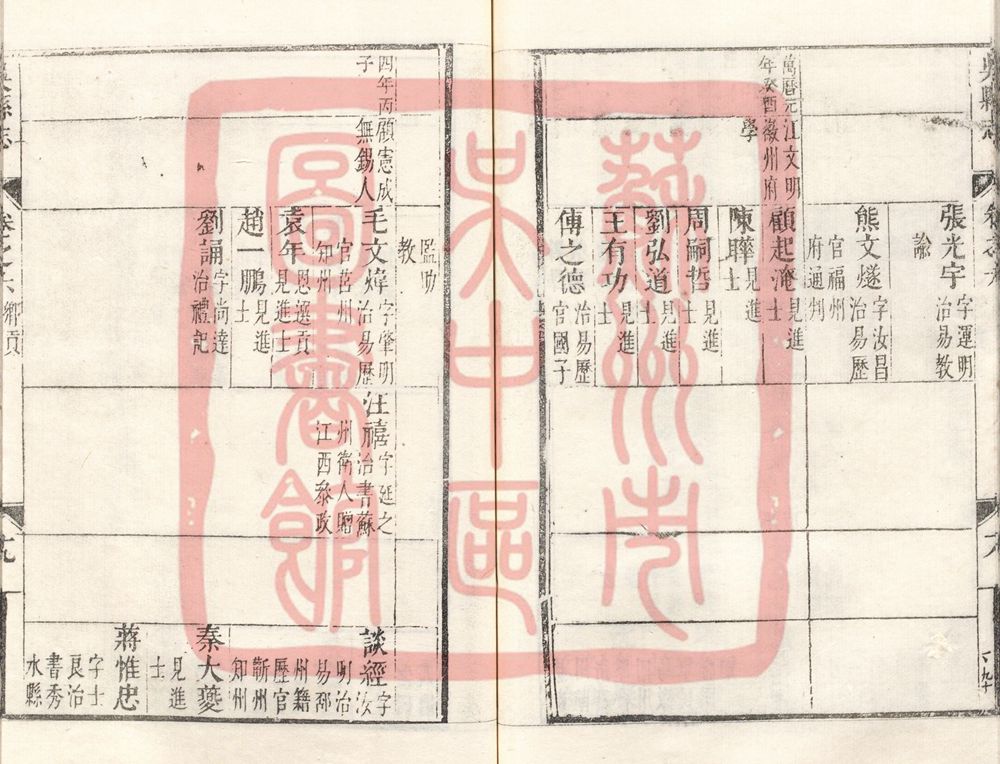 吳縣志
張光宇
字運明
治易教
諭
熊文燧
字汝昌
治易歷
官福州
府通判
萬曆元
年癸酉
江文明
徽州府
學
顧起淹
見進
士
陳驊
見進
士
周嗣哲
見進
士
劉弘道
見進
士
王有功
見進
士
傅之德
治易歷
官國子
監助
教
四年丙
子
顧憲成
無錫人
毛文煒
字肇明
治易歷
官莒州
知州
汪禧
字延之
治書蘇
州衛人贈
江西叅政
談經
字汝
明治
易邳
州籍
歷官
蘄州
知州
袁年
恩選貢
見進士
趙一鵬
見進
士
秦大夔
見進
士
劉誦
字尚達
治禮記
蔣惟忠
字士
良治
書秀
水縣
吳縣志
卷之六
鄉貢
九
蘇州市
吳中區
圖書館